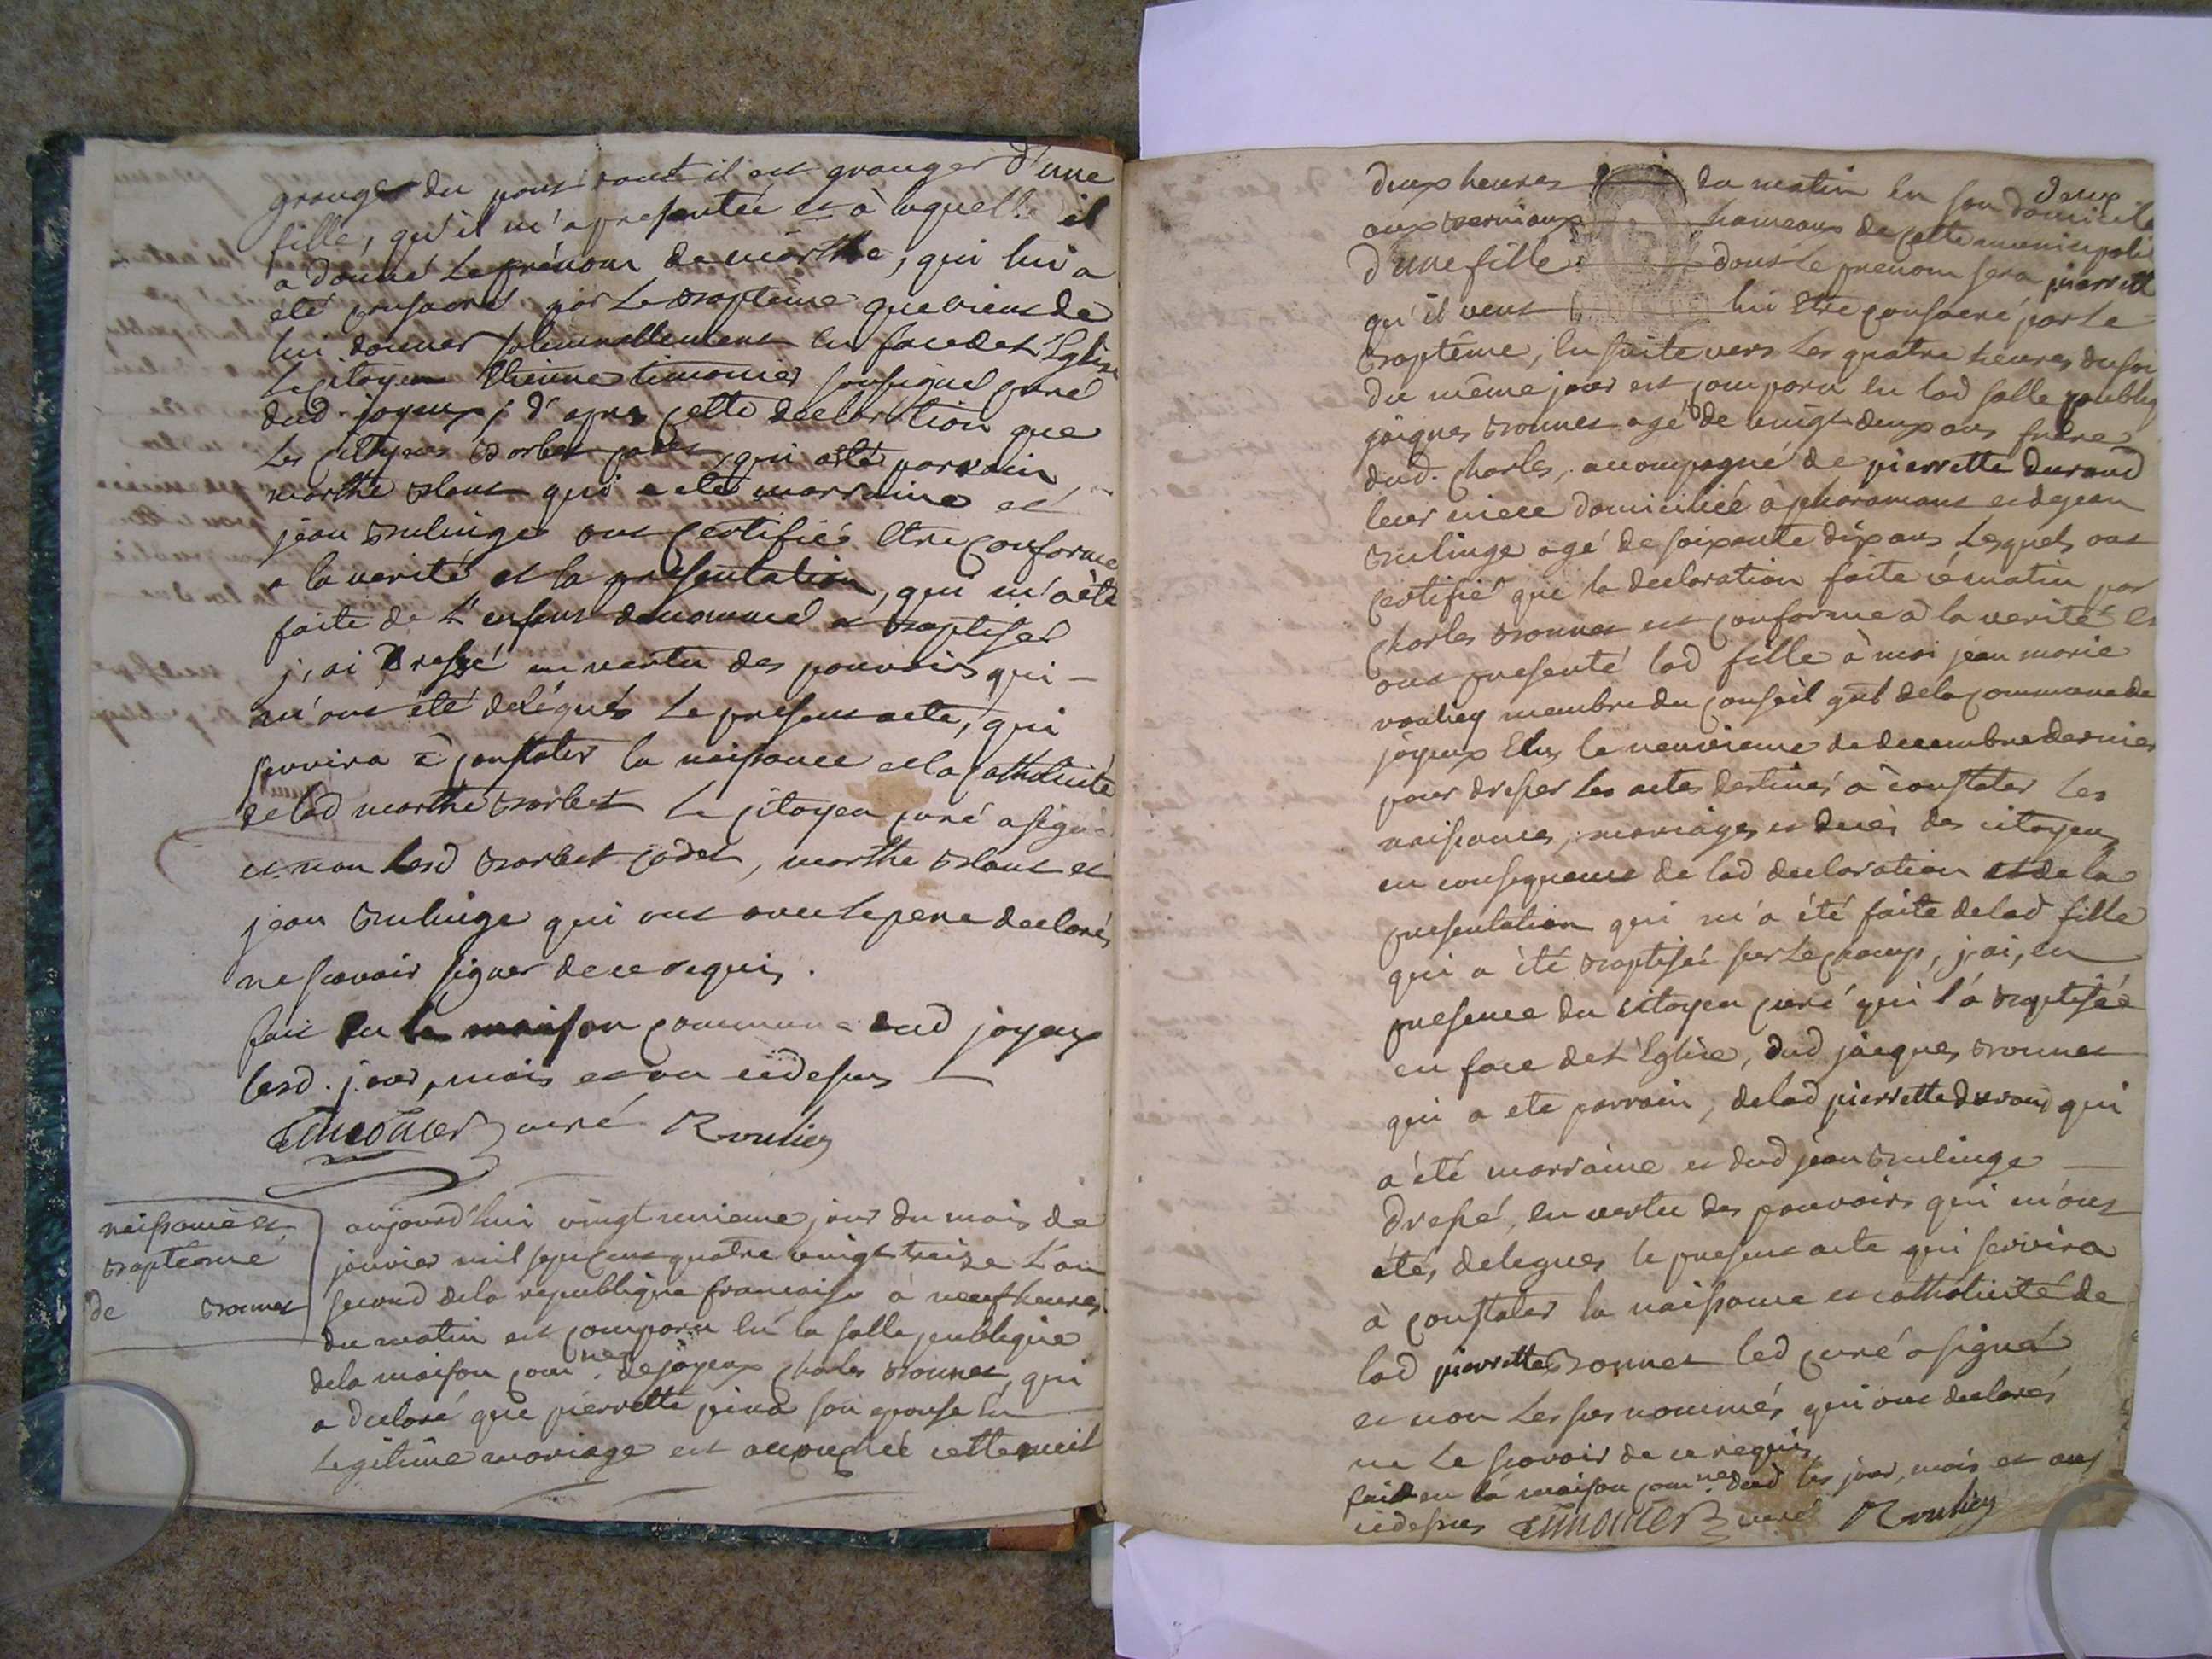 granger du pont dont il est granger d'une
fille, qu'il m'a presentée et à laquelle il
a donné le prénom de marthe, qui lui a
été consacré par le Baptême que viens de
lui donner solemnellement en face de l'Eglise
le citoyen Etienne timonier soussigné curé
dud. joyeux; d'apres cette declaration que
les cittoyens Barbet cadet, qui a été parrain
marthe Blanc qui a été marraine et
jean Bulinge ont certifiés etre conforme
a la verité et la presentation, qui m'a été
faite de l'enfant denommé et Baptiser
j'ai Dressé en vertu des pouvoirs qui -
m'ont été delégués le present acte, qui
servira à constater la naissance et la catholicité
de lad marthe Barbet le citoyen curé a signé
et non lesd Barbet cadet, marthe Blanc et
jean Bulinge qui ont avec le pere declarés
ne sçavoir signer de ce requis.
fait en la maison commune dud joyeux
lesd. jour, mois et an cidessus
Timonier curé Rouhey
naissance et
Baptême
de Bonnet
aujourd'hui vingt unieme jour du mois de
janvier mil sept cent quatre vingt treize l'an
second dela republique francaise à neuf heures
du matin est comparu en la salle publique
dela maison com.nes de joyeux charles Bonnet, qui
a declaré que pierrette pina son epouse en
legitime mariage est accouchée cette nuit
deux heures du matin en son domicile
aux verniaux deux hameaux de cette municipalité
d'une fille dont le prenom sera pierrette
qu'il veut lui etre consacré par le
Baptême, en suite vers les quatre heures du soir
du même jour est comparu en lad salle publiq
jacques Bonnet agé de vingt deux ans frere
dud. charles, accompagné de pierrette durand
leur niece domiciliée à pharamans et de jean
Bulinge agé de soixante dix ans lesquels ont
certifié que la declaration faite ce matin par
charles Bonnet est conforme a la verité et
ont presenté lad fille à moi jean marie
rouhey membre du conseil gnl de la commune de
joyeux Elu le neuvieme de decembre dernier
pour dresser les actes destinés à constater les
naissances, mariages et decès des citoyens
en consequence de lad declaration et de la
presentation qui m'a été faite de lad fille
qui a été Baptisée sur le champ, j'ai, en
presence du citoyen curé qui l'a Baptisée
en face de l'Eglise, dud jacques Bonnet
qui a ete parrain, de lad pierrette durand qui
a été marraine et dud jean Bulinge
dressé, en vertu des pouvoirs qui m'ont
été, delegues le present acte qui servira
à constater la naissance et catholicité de
lad pierrette Bonnet led curé a signé
et non les sus nommés qui ont declarés
ne le sçavoir de ce requis
fait en la maison com.nes dud les jour, mois et ans
cidessus Timonier curé Rouhey